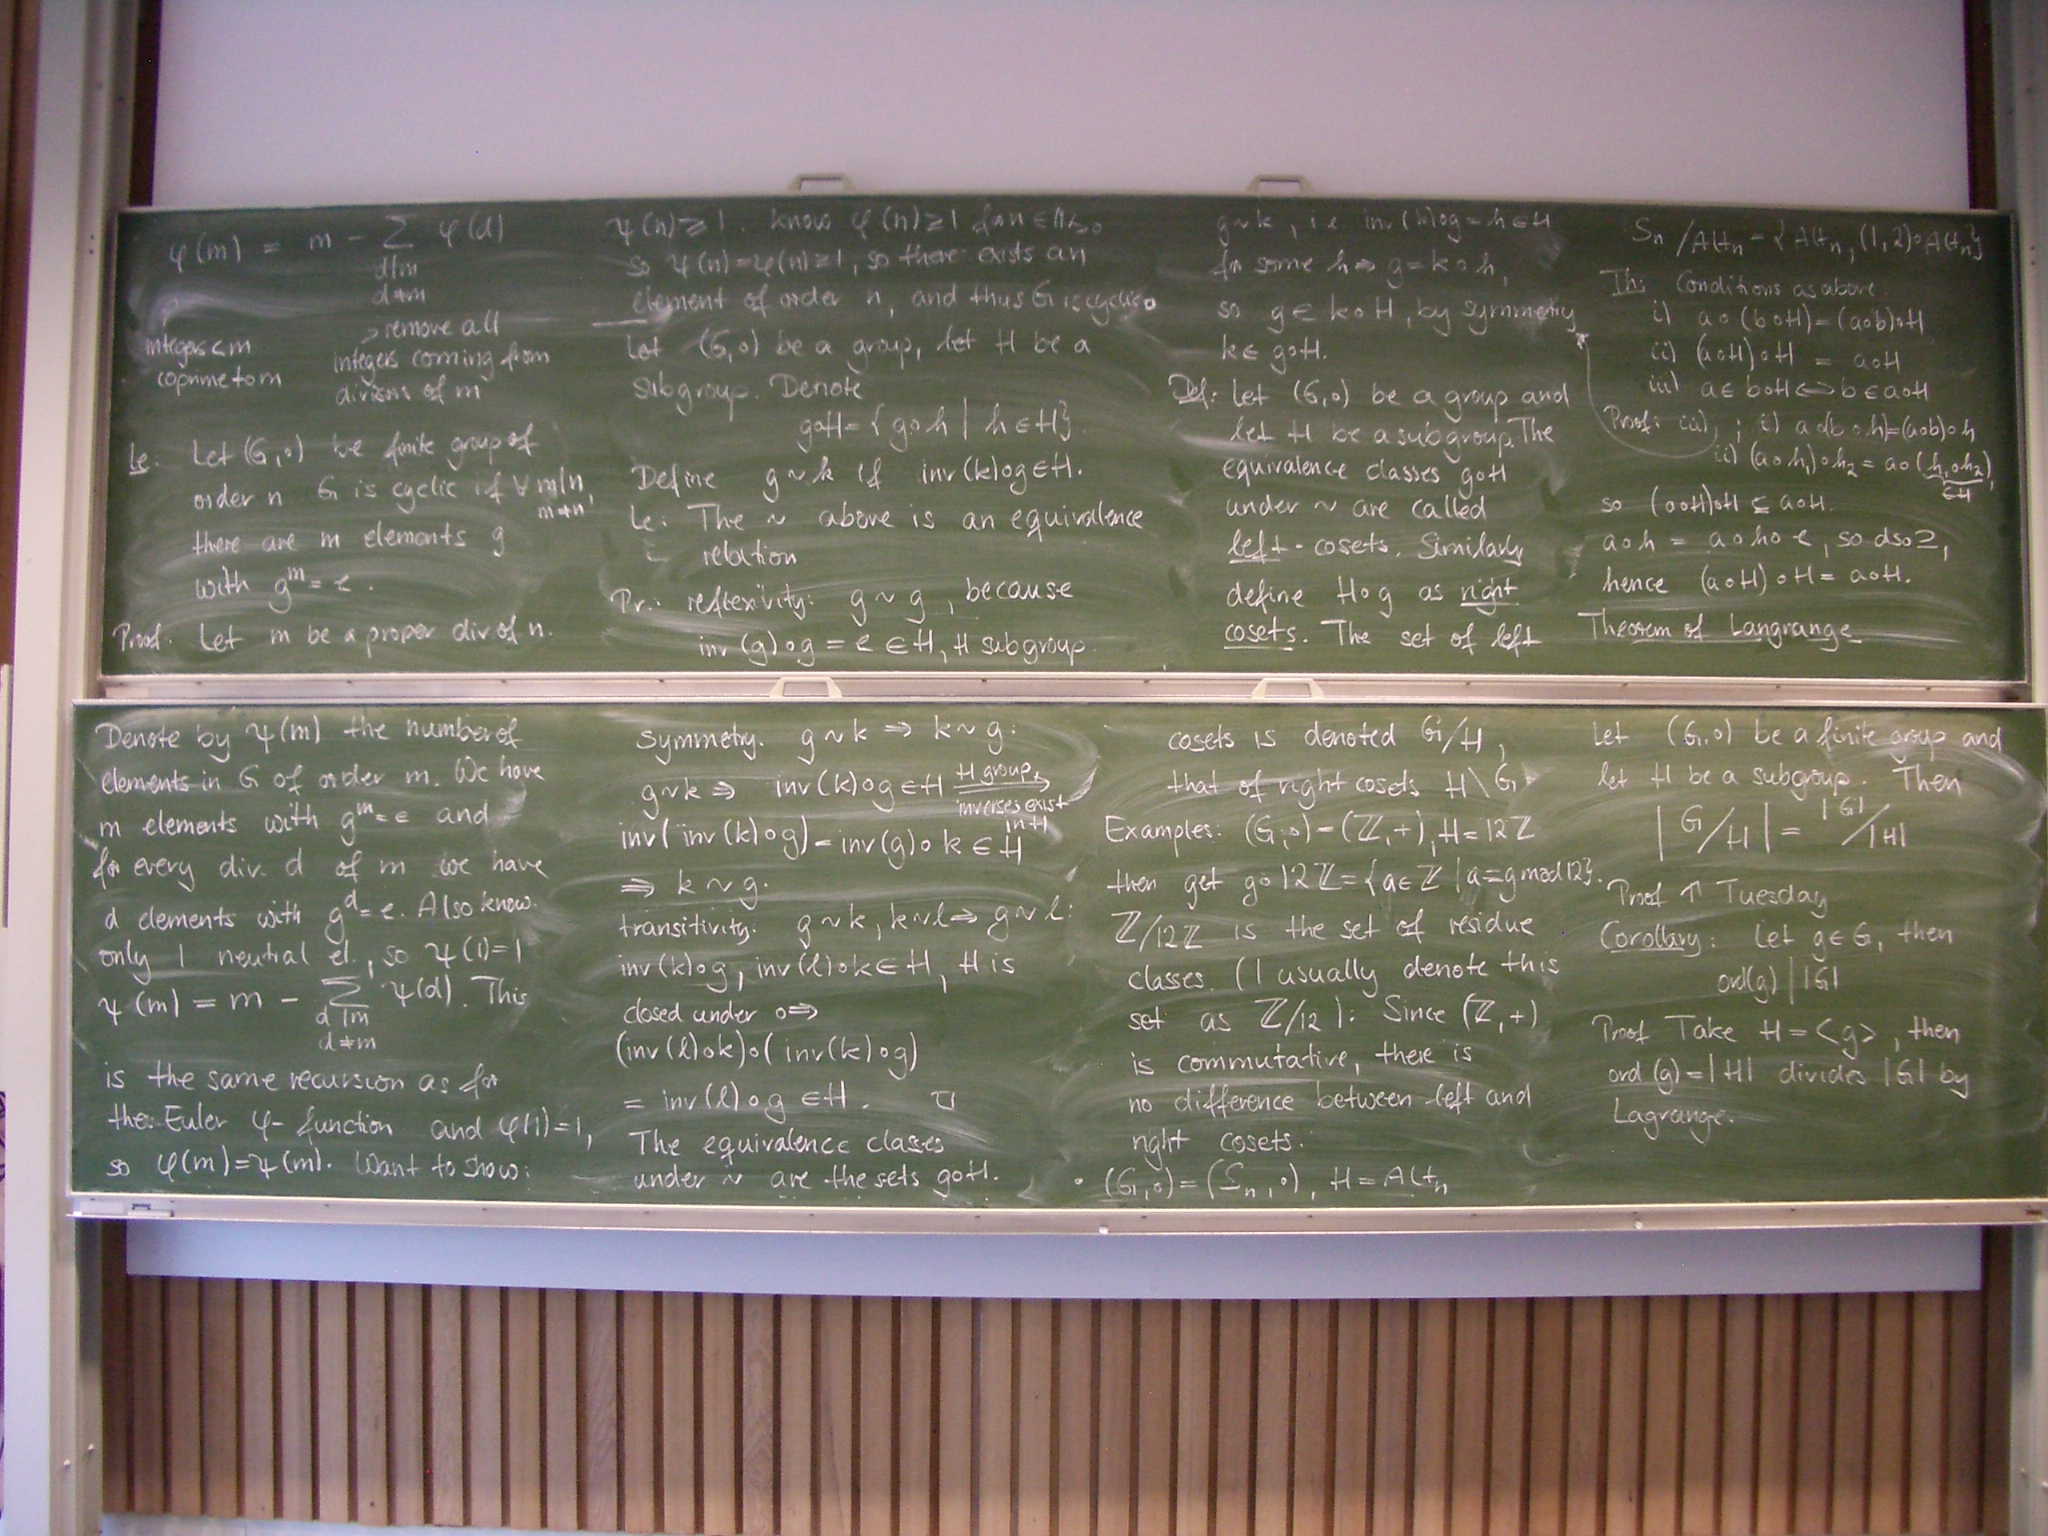 φ(m) = m - Σ φ(d)
d|m
d≠m
integers < m
coprime to m
remove all
integers coming from
divisors of m
Le: Let (G,∘) be finite group of
order n G is cyclic if ∀ m|n,
m≠n
there are m elements g
with g^m = e.
Proof: Let m be a proper div of n.
Denote by ψ(m) the number of
elements in G of order m. We have
m elements with g^m = e and
for every div. d of m we have
d elements with g^d = e. Also know.
only 1 neutral el., so ψ(1)=1
ψ(m) = m - Σ ψ(d). This
d|m
d≠m
is the same recursion as for
the Euler φ-function and φ(1)=1,
so φ(m)=ψ(m). Want to show:
ψ(n) ≥ 1. know φ(n) ≥ 1 for n ∈ ℕ>0
so ψ(n)=φ(n)≥1, so there exists an
element of order n, and thus G is cyclic □
Let (G,∘) be a group, let H be a
subgroup. Denote
g∘H = {g∘h | h∈H}.
Define g~k if inv(k)∘g∈H.
Le: The ~ above is an equivalence
relation
Pr.: reflexivity: g~g, because
inv(g)∘g = e ∈ H, H subgroup.
symmetry. g~k ⇒ k~g:
g~k ⇒ inv(k)∘g∈H H group ⇒
inverses exist
in H
inv(inv(k)∘g) = inv(g)∘k ∈ H
⇒ k~g.
transitivity: g~k, k~l ⇒ g~l:
inv(k)∘g, inv(l)∘k∈H, H is
closed under ∘ ⇒
(inv(l)∘k)∘(inv(k)∘g)
= inv(l)∘g ∈H. □
The equivalence classes
under ~ are the sets g∘H.
g~k, i.e. inv(k)∘g = h∈H
for some h ⇒ g = k∘h,
so g∈ k∘H, by symmetry
k∈ g∘H.
Def: Let (G,∘) be a group and
let H be a subgroup. The
equivalence classes g∘H
under ~ are called
left-cosets. Similarly
define H∘g as right
cosets. The set of left
cosets is denoted G/H,
that of right cosets H\G
Examples: (G,∘)=(ℤ,+), H=12ℤ
then get g∘12ℤ={a∈ℤ | a≡g mod 12}.
ℤ/12ℤ is the set of residue
classes. (I usually denote this
set as ℤ/12): Since (ℤ,+)
is commutative, there is
no difference between left and
right cosets.
• (G,∘)=(S_n,∘), H=Alt_n
S_n/Alt_n = {Alt_n, (1,2)∘Alt_n}
Th: Conditions as above.
i) a∘(b∘H)=(a∘b)∘H
ii) (a∘H)∘H = a∘H
iii) a∈b∘H ⟺ b∈a∘H
Proof: iii) ; i) a∘(b∘h)=(a∘b)∘h
ii) (a∘h₁)∘h₂ = a∘(h₁∘h₂),
∈H
so (a∘H)∘H ⊆ a∘H.
a∘h = a∘h∘e, so also ⊇,
hence (a∘H)∘H = a∘H.
Theorem of Langrange
Let (G,∘) be a finite group and
let H be a subgroup. Then
|G/H| = |G|/|H|
Proof ↑ Tuesday
Corollary: Let g∈G, then
ord(g) | |G|
Proof Take H = <g>, then
ord(g)=|H| divides |G| by
Lagrange.